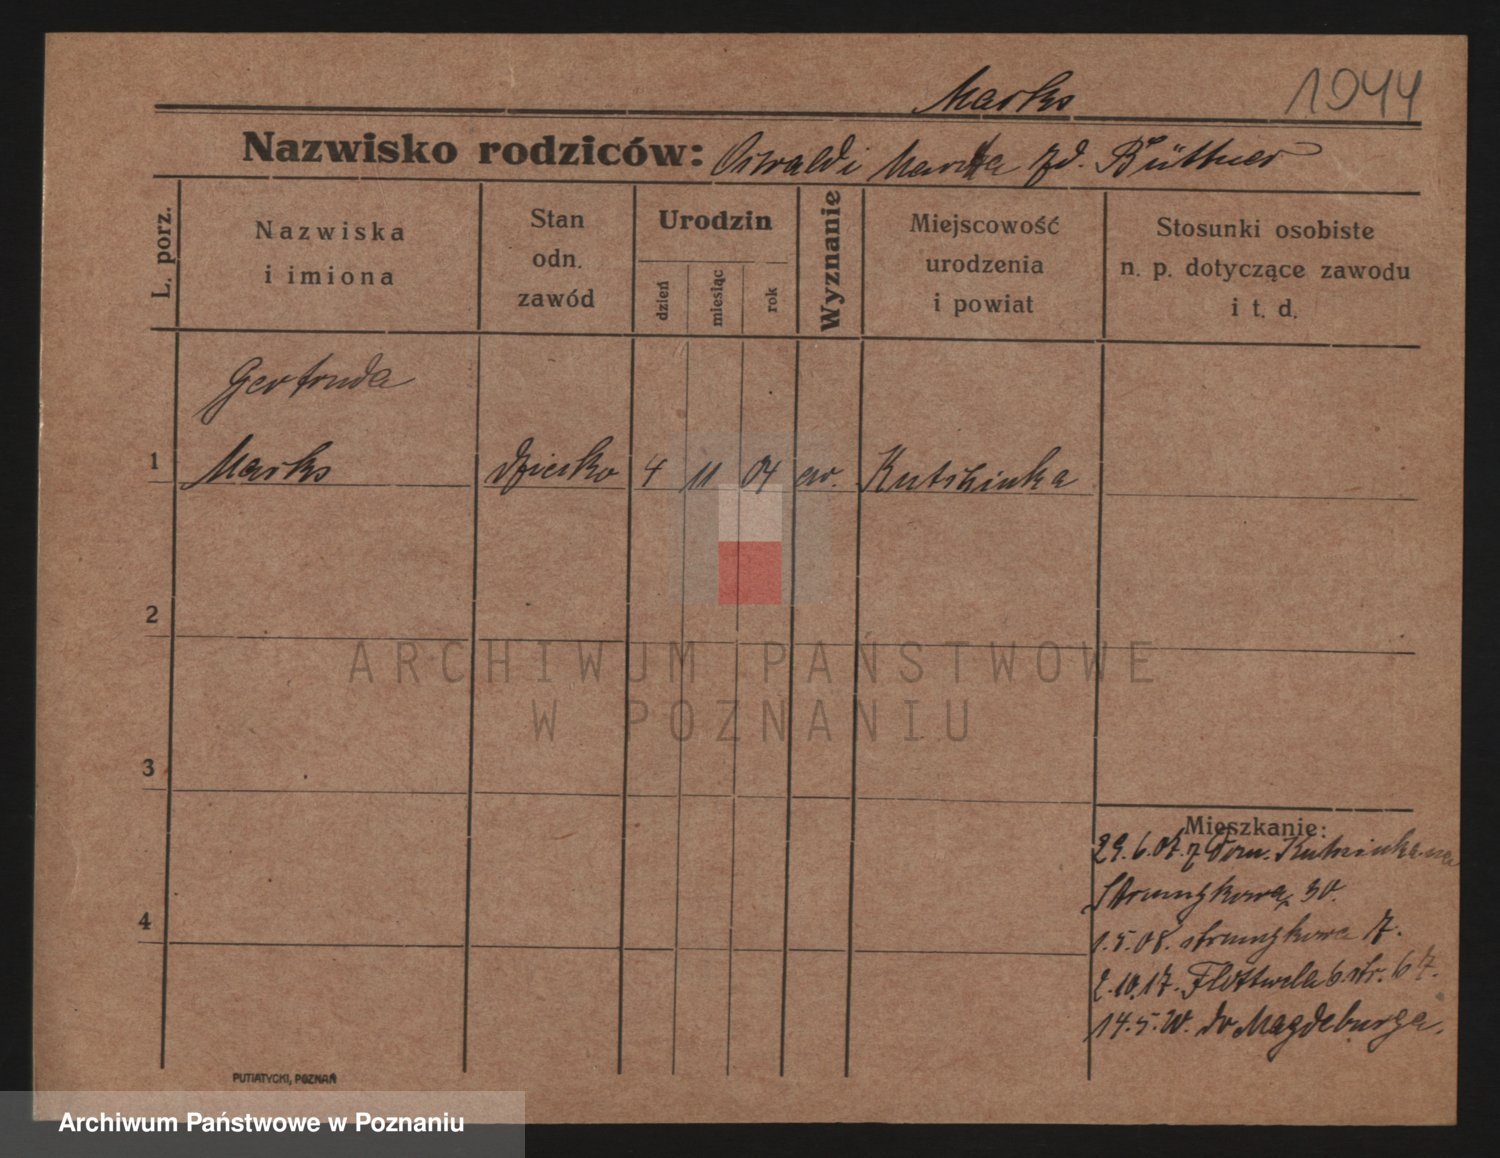 Marks
1944
Nazwisko rodziców: Oswald i Marta zd. Büttner
L. porz.
Nazwiska
i imiona
Stan
odn.
zawód
Urodzin
dzień
miesiąc
rok
Wyznanie
Miejscowość
urodzenia
i powiat
Stosunki osobiste
n. p. dotyczące zawodu
i t. d.
Gertruda
1 Marks dziecko 4 11 04 ew. Kutshinka
2
ARCHIWUM PAŃSTWOWE
W POZNANIU
3
Mieszkanie:
29.6.07. z Dom.
30.
4
1.5.08. 7.
2.10.17. str. 67.
14.5.20. do Magdeburga.
PUTIATYCKI, POZNAŃ
Archiwum Państwowe w Poznaniu